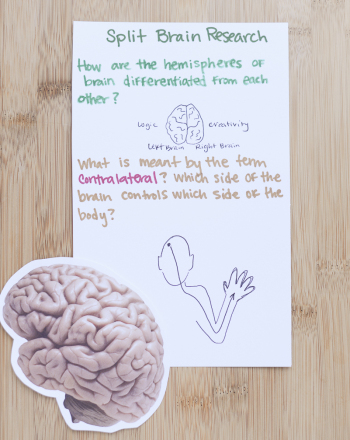 Split Brain Research
How are the hemispheres of
brain differentiated from each
other?
Logic creativity
Left Brain Right Brain
What is meant by the term
Contralateral? Which side of the
brain controls which side of the
body?